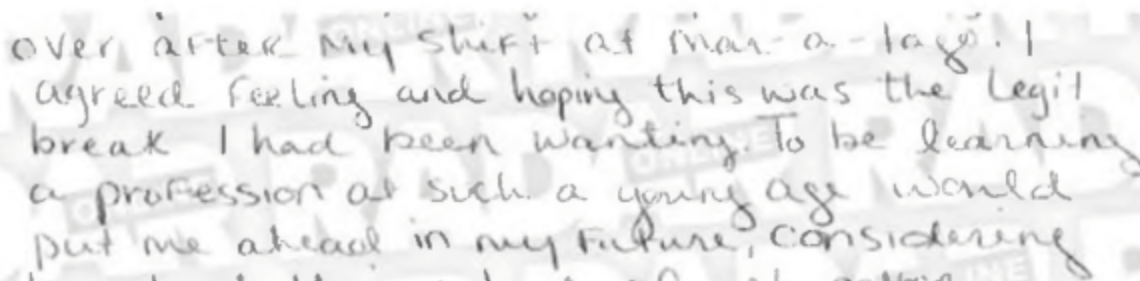 over after my shift at mar-a-lago. I
agreed feeling and hoping this was the legit
break I had been wanting. To be learning
a profession at such a young age would
put me ahead in my future, considering